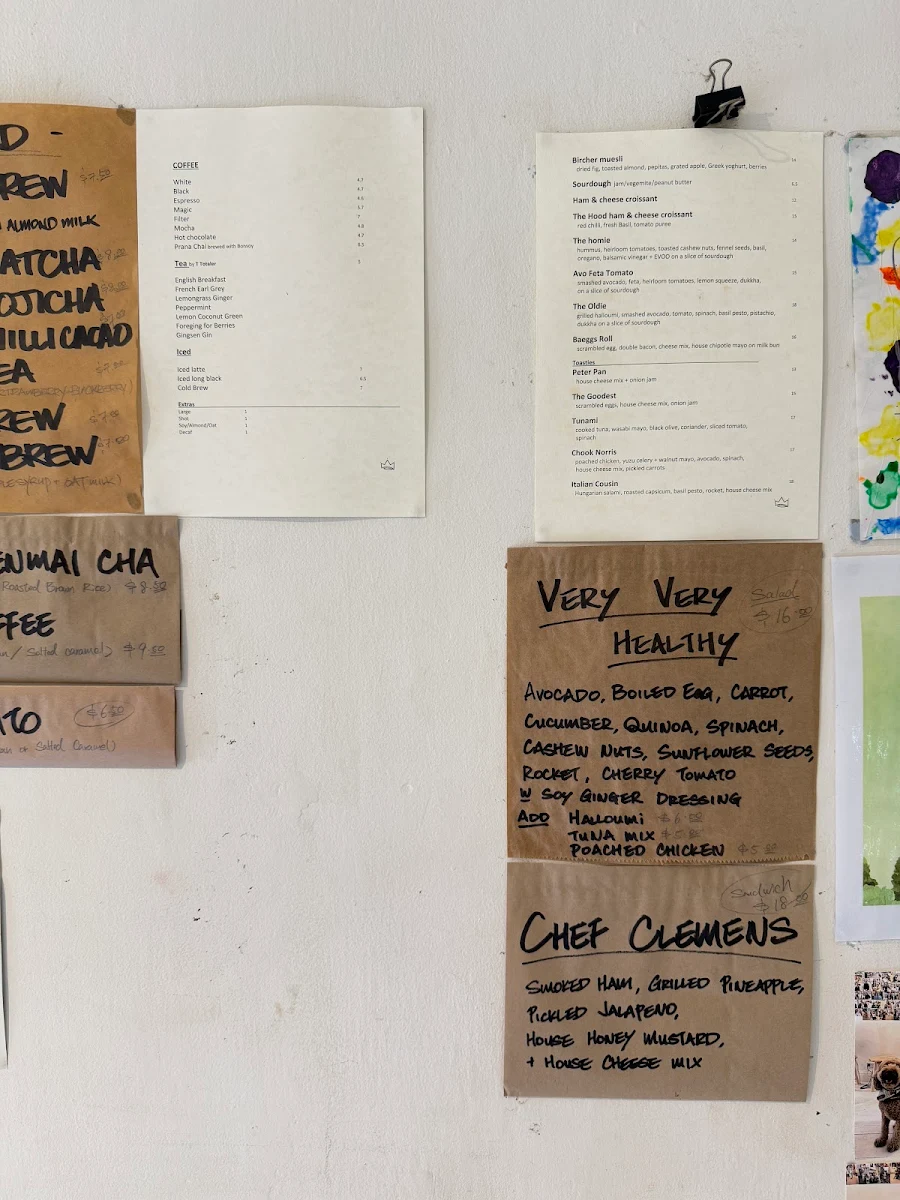 D -
REW $7.50
ALMOND MILK
ATCHA
OJICHA
HILLI CACAO
EA
(STRAWBERRY + BLACKBERRY)
REW
BREW $7.50
+ OATMILK)
ENMAI CHA
Roasted Brown Rice) $8.50
FFEE
/ Salted caramel) $9.50
TO $6.50
or Salted Caramel)
COFFEE
White 4.7
Black 4.7
Espresso
Magic 4.7
Filter 7
Mocha
Hot chocolate 4.7
Prana Chai brewed with Bonsoy
Tea by T Totaler 5
English Breakfast
French Earl Grey
Lemongrass Ginger
Peppermint
Lemon Coconut Green
Foreging for Berries
Gingsen Gin
Iced
Iced latte 7
Iced long black 6.5
Cold Brew 7
Extras
Large 1
Shot 1
Soy/Almond/Oat 1
Decaf 1
Bircher muesli
dried fig, toasted almond, pepitas, grated apple, Greek yoghurt, berries
Sourdough jam/vegemite/peanut butter
Ham & cheese croissant
The Hood ham & cheese croissant
red chilli, fresh Basil, tomato puree
The homie
hummus, heirloom tomatoes, toasted cashew nuts, fennel seeds, basil,
oregano, balsamic vinegar + EVOO on a slice of sourdough
Avo Feta Tomato
smashed avocado, feta, heirloom tomatoes, lemon squeeze, dukkha,
on a slice of sourdough
The Oldie
grilled halloumi, smashed avocado, tomato, spinach, basil pesto, pistachio,
dukkha on a slice of sourdough
Baeggs Roll 16
scrambled egg, double bacon, cheese mix, house chipotle mayo on milk bun
Toasties
Peter Pan 13
house cheese mix + onion jam
The Goodest
scrambled eggs, house cheese mix, onion jam
Tunami 17
cooked tuna, wasabi mayo, black olive, coriander, sliced tomato,
spinach
Chook Norris 17
poached chicken, yuzu celery + walnut mayo, avocado, spinach,
house cheese mix, pickled carrots
Italian Cousin
Hungarian salami, roasted capsicum, basil pesto, rocket, house cheese mix
VERY VERY
HEALTHY
Salad
$16.50
AVOCADO, BOILED EGG, CARROT,
CUCUMBER, QUINOA, SPINACH,
CASHEW NUTS, SUNFLOWER SEEDS,
ROCKET, CHERRY TOMATO
W SOY GINGER DRESSING
ADD HALLOUMI
TUNA MIX
POACHED CHICKEN $5
Sandwich
$18.50
CHEF CLEMENS
SMOKED HAM, GRILLED PINEAPPLE,
PICKLED JALAPENO,
HOUSE HONEY MUSTARD,
+ HOUSE CHEESE MIX